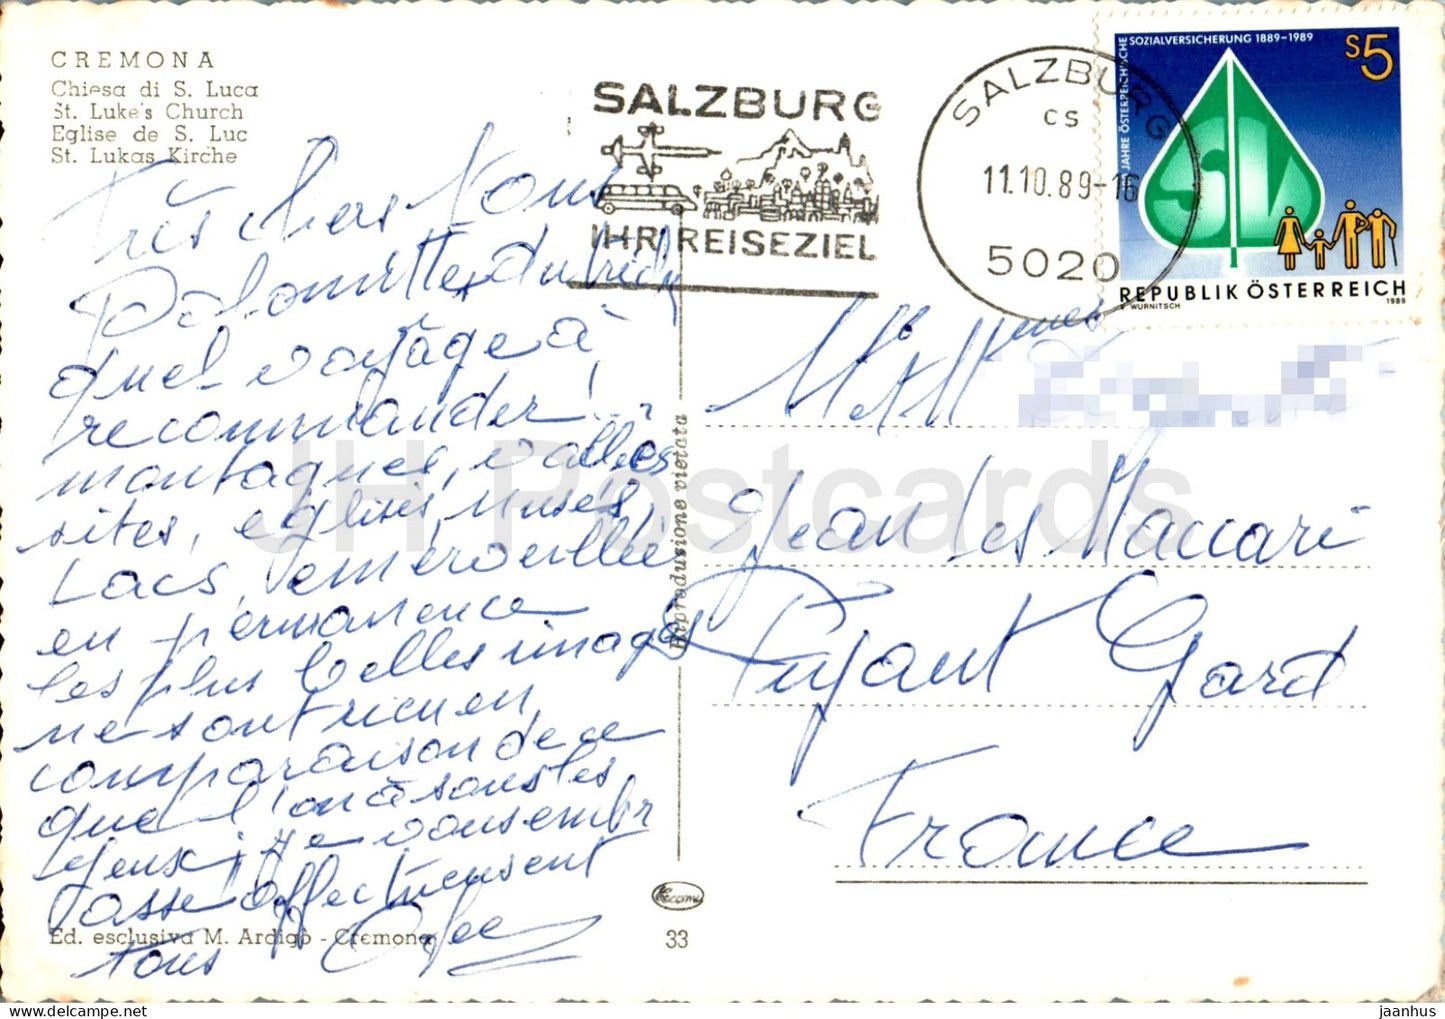 CREMONA
Chiesa di S. Luca
St. Luke's Church
Eglise de S. Luc
St. Lukas Kirche
SALZBURG
IHR REISEZIEL
SALZBURG
CS
11.10.89-16
5020
100 JAHRE ÖSTERREICHISCHE SOZIALVERSICHERUNG 1889-1989
S5
SV
REPUBLIK ÖSTERREICH
WURNITSCH
1989
Très chers Nous
Dolomittes du
quel voyage à
recommander!
montagnes, vallées
sites, églises, musés,
Lacs, emerveillé
en permanence
les plus belles images
ne sont rien en
comparaison de ce
que l'on à sous les
yeux; je vous embr
asse affectueusement
tous
Jean Les Maccari
Pujaut Gard
France
Riproduzione vietata
Ed. esclusiva M. Ardigò - Cremona
33
JH Postcards
jaanhus